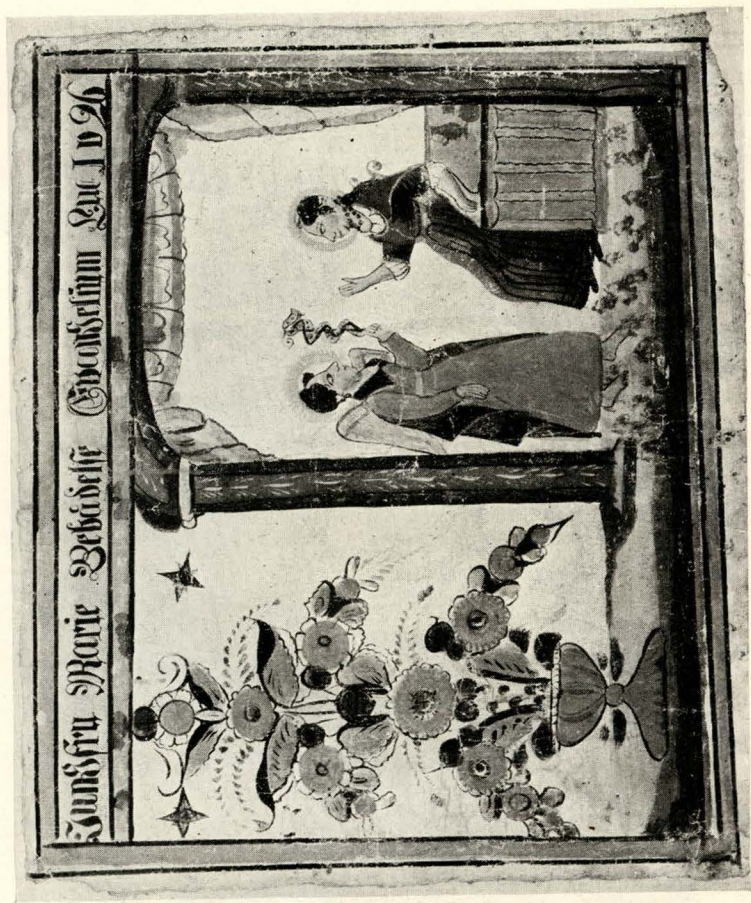 Jungfru Marie Bebådelse Evangelium Luc 1 v 26